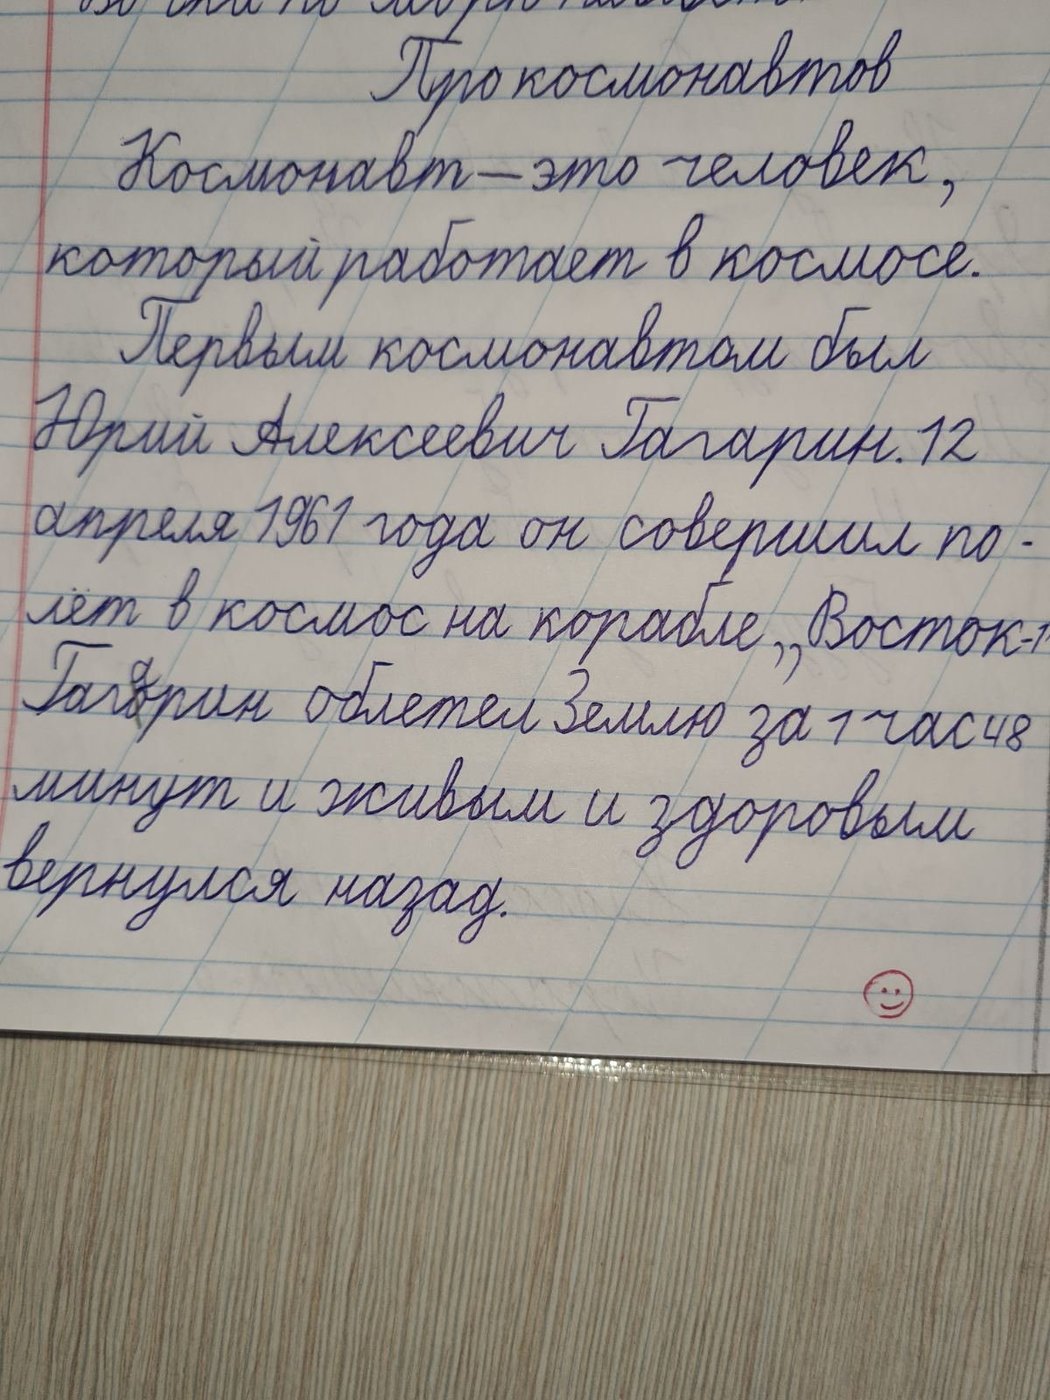 Про космонавтов
Космонавт – это человек,
который работает в космосе.
Первым космонавтом был
Юрий Алексеевич Гагарин. 12
апреля 1961 года он совершил по-
лёт в космос на корабле „Восток-1
Гагарин облетел Землю за 1 час 48
минут и живым и здоровым
вернулся назад.